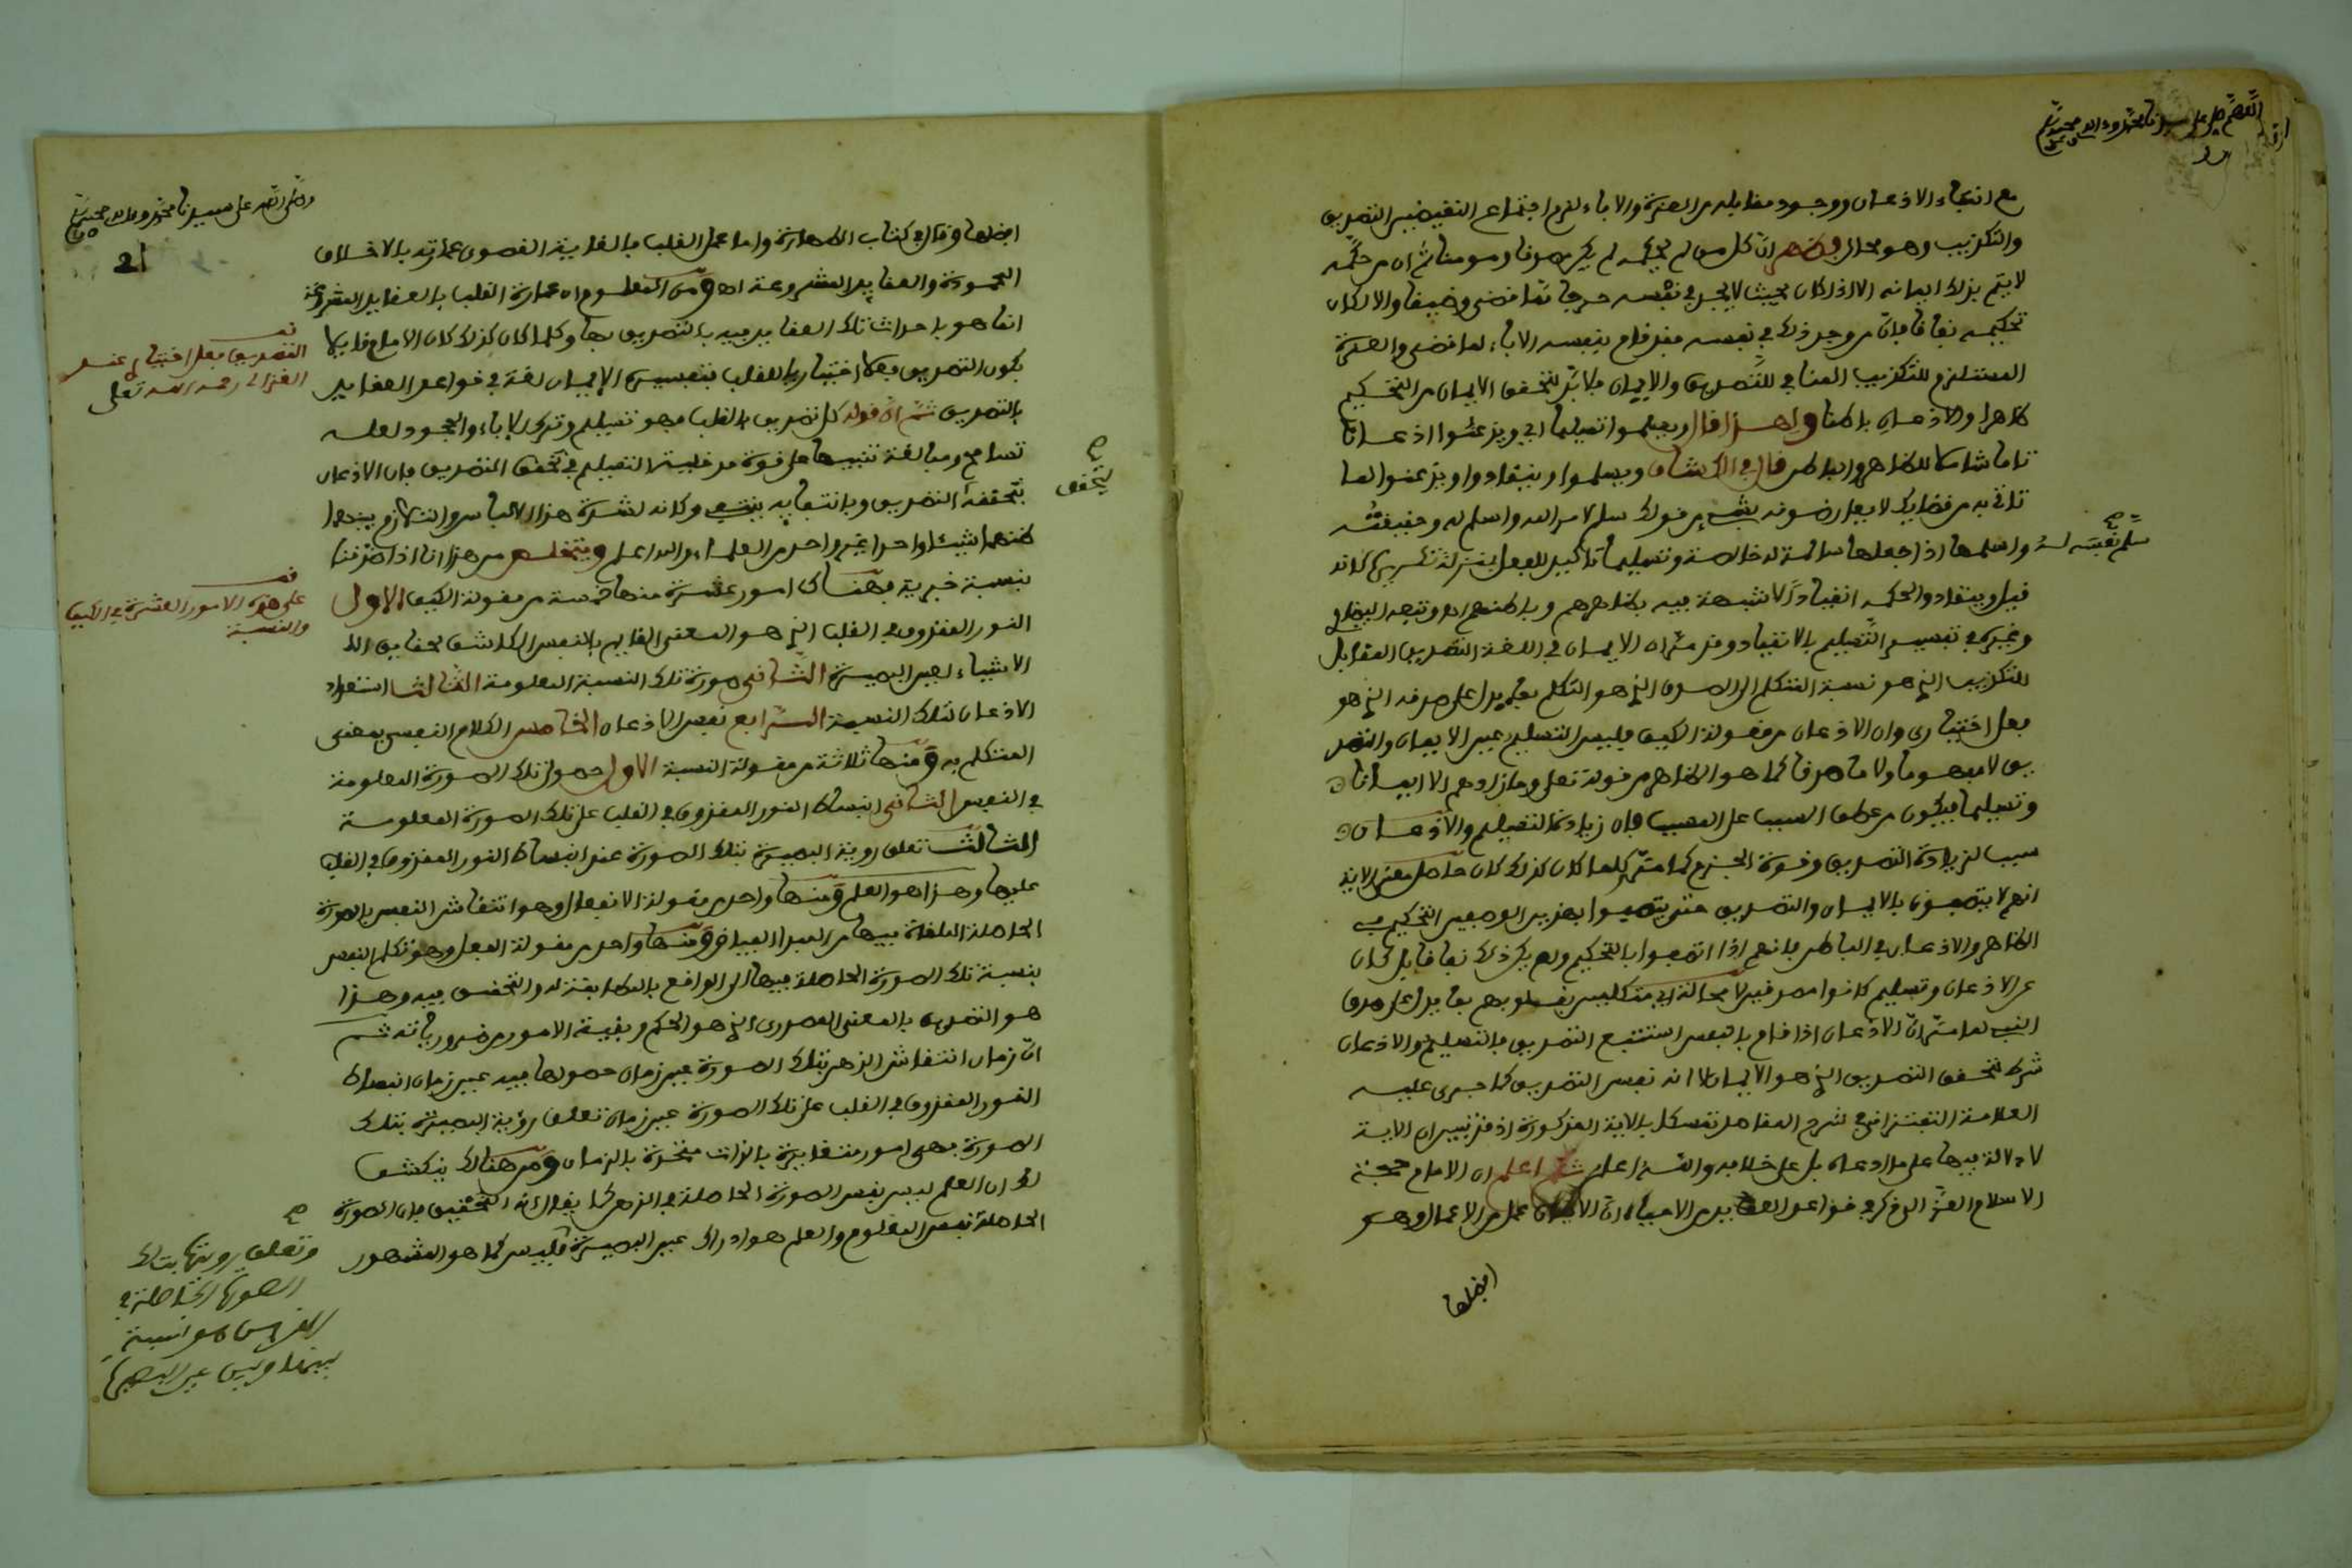 اللهم صل على سيدنا محمد وآله
مع انتفاء الاذعان ووجود مقابله من العزة والاباء لزم اجتماع النقيضين التصديق
والتكذيب وهو محال ان كل من لم يحكمه لم يكن صدقا ومومنا ثم ان من حكمه
لا يتم بذلك ايمانه الا اذا كان بحيث لا يجد في نفسه حرجا مما قضى وضيقا والا لكان
تحكيمه نفاقا فان من وجد ذلك في نفسه فقد قام بنفسه الاباء لما قضى والعزة
المستلزم للتكذيب المنافي للتصديق والايمان فلا بد لتحقق الايمان من التحكيم
ظاهرا والاذعان باطنا ولهذا قال ويسلموا تسليما اي ويذعنوا اذعانا
تاما شاملا للظاهر والباطن قال في الكشاف ويسلموا وينقادوا ويذعنوا لما
تاتي به من قضايك لا يعارضونه بشيء من قولك سلم لامر الله واسلم له وحقيقته
سلم نفسه له واسلمها اذا جعلها سالمة له خالصة وتسليما تاكيد للفعل بمنزلة تكريره كانه
قيل وينقادوا لحكمه انقيادا لا شبهة فيه بظاهرهم وباطنهم اه وتبعه البيضاوي
وغيره في تفسير التسليم بالانقياد وقد مر ان الايمان في اللغة التصديق المقابل
للتكذيب الذي هو نسبة المتكلم الى الصدق الذي هو التكلم بما يدل على صدقه الذي هو
فعل اختياري وان الاذعان من مقولة الكيف فليس التسليم عين الايمان والتصد
يق لا مفهوما ولا ماصدقا كما هو الظاهر من قوله تعلى وما زادهم الا ايمانا
وتسليما فيكون من عطف السبب على المسبب فان زيادة التسليم والاذعان
سبب لزيادة التصديق وقوة الجزم كما مر كلما كان كذلك كان حاصل معنى الاية
انهم لا يتصفون بالايمان والتصديق حتى يتصفوا بهذين الوصفين التحكيم في
الظاهر والاذعان في الباطن فانهم اذا اتصفوا بالتحكيم ولم يكن ذلك نفاقا بل كان
عن الاذعان وتسليم كانوا مصدقين لا محالة اي متكلمين بقلوبهم بما يدل على صدق
النبي لما مر ان الاذعان اذا قام بالنفس استتبع التصديق فالتسليم والاذعان
شرط لتحقق التصديق الذي هو الايمان لا انه نفس التصديق كما جرى عليه
العلامة التفتزاني في شرح المقاصد تمسكا بالاية المذكورة اذ قد تبين ان الاية
لا دلالة فيها على ما ادعاه بل على خلافه والله اعلم ثم اعلم ان الامام حجة
الاسلام الغزالي ذكر في قواعد العقايد من الاحياء ان الايمان عمل من الاعمال وهو
افضلها
وصلى الله على سيدنا محمد وآله وصحبه
21
افضلها وقال في كتاب الطهارة واما عمل القلب فالغاية القصوى عمارته بالاخلاق
المحمودة والعقايد المشروعة اه ومن المعلوم ان عمارة القلب بالعقايد المشروعة
انما هو باحداث تلك العقايد فيه بالتصديق بها وكلما كان كذلك كان الامام قايلا
التصديق فعل اختياري عند
الغزالي رحمه الله تعلى
بكون التصديق فعلا اختياريا للقلب بتفسيره الايمان لغة في قواعد العقايد
بالتصديق ثم ان قوله كل تصديق بالقلب فهو تسليم وترك الاباء والجحود لعله
تسامح ومبالغة تنبيها على قوة مدخلية التسليم في تحقق التصديق فان الاذعان
يتحقق
بتحققه التصديق وبانتفايه ينتفي وكانه لشدة هذا الالتباس والتلازم بينهما
ظنهما شيئا واحدا غير واحد من العلماء والله اعلم ويتلخص من هذا انا اذا صدقنا
بنسبة خبرية فهناك امور عشرة منها خمسة من مقولة الكيف الاول
على هذه الامور العشرة في الكيف
والنسبة
النور المقذوف في القلب الذي هو المعنى القايم بالنفس الكاشف لحقايق الا
الاشياء لعين البصيرة الثاني صورة تلك النسبة المعلومة الثالث استعداد
الاذعان لتلك النسبة الرابع نفس الاذعان الخامس الكلام النفسي بمعنى
المتكلم به ومنها ثلاثة من مقولة النسبة الاول حصول تلك الصورة المعلومة
في النفس الثاني انبساط النور المقذوف في القلب على تلك الصورة المعلومة
الثالث تعلق روية البصيرة بتلك الصورة عند انبساط النور المقذوف في القلب
عليها وهذا هو العلم ومنها واحد من مقولة الانفعال وهو انتقاش النفس بالصورة
الحاصلة الملقاة فيها من المبدا الفياض ومنها واحد من مقولة الفعل وهو تكلم النفس
بنسبة تلك الصورة الحاصلة فيها الى الواقع بالمطابقة له والتحقق فيه وهذا
هو التصديق بالمعنى المصدري الذي هو الحكم وبقية الامور من ضرورياته ثم
ان زمان انتقاش الذهن بتلك الصورة عين زمان حصولها فيه عين زمان انبساط
النور المقذوف في القلب على تلك الصورة عين زمان تعلق رؤية البصيرة بتلك
الصورة فهي امور متغايرة بالذات متحدة بالزمان ومن هناك ينكشف
لك ان العلم ليس نفس الصورة الحاصلة في الذهن كما يقال انه التحقيق فان الصورة
الحاصلة نفس المعلوم والعلم هو ادراك عين البصيرة فليس كما هو المشهور
وتعلق رويتها بتلك
الصورة الحاصلة في
النفس هو نسبة
بينها وبين عين البصيرة